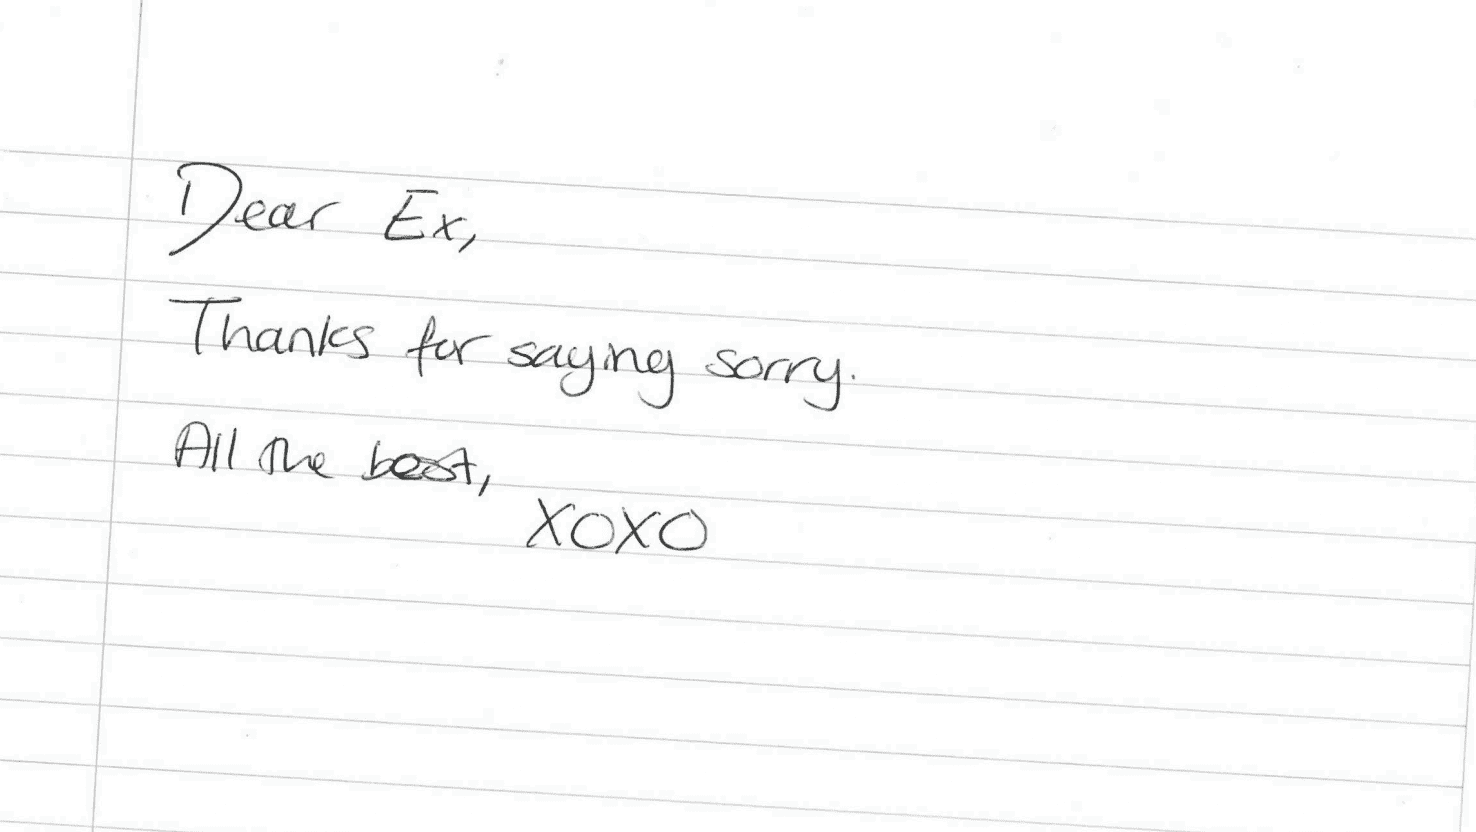 Dear Ex,
Thanks for saying sorry.
All the best,
XOXO